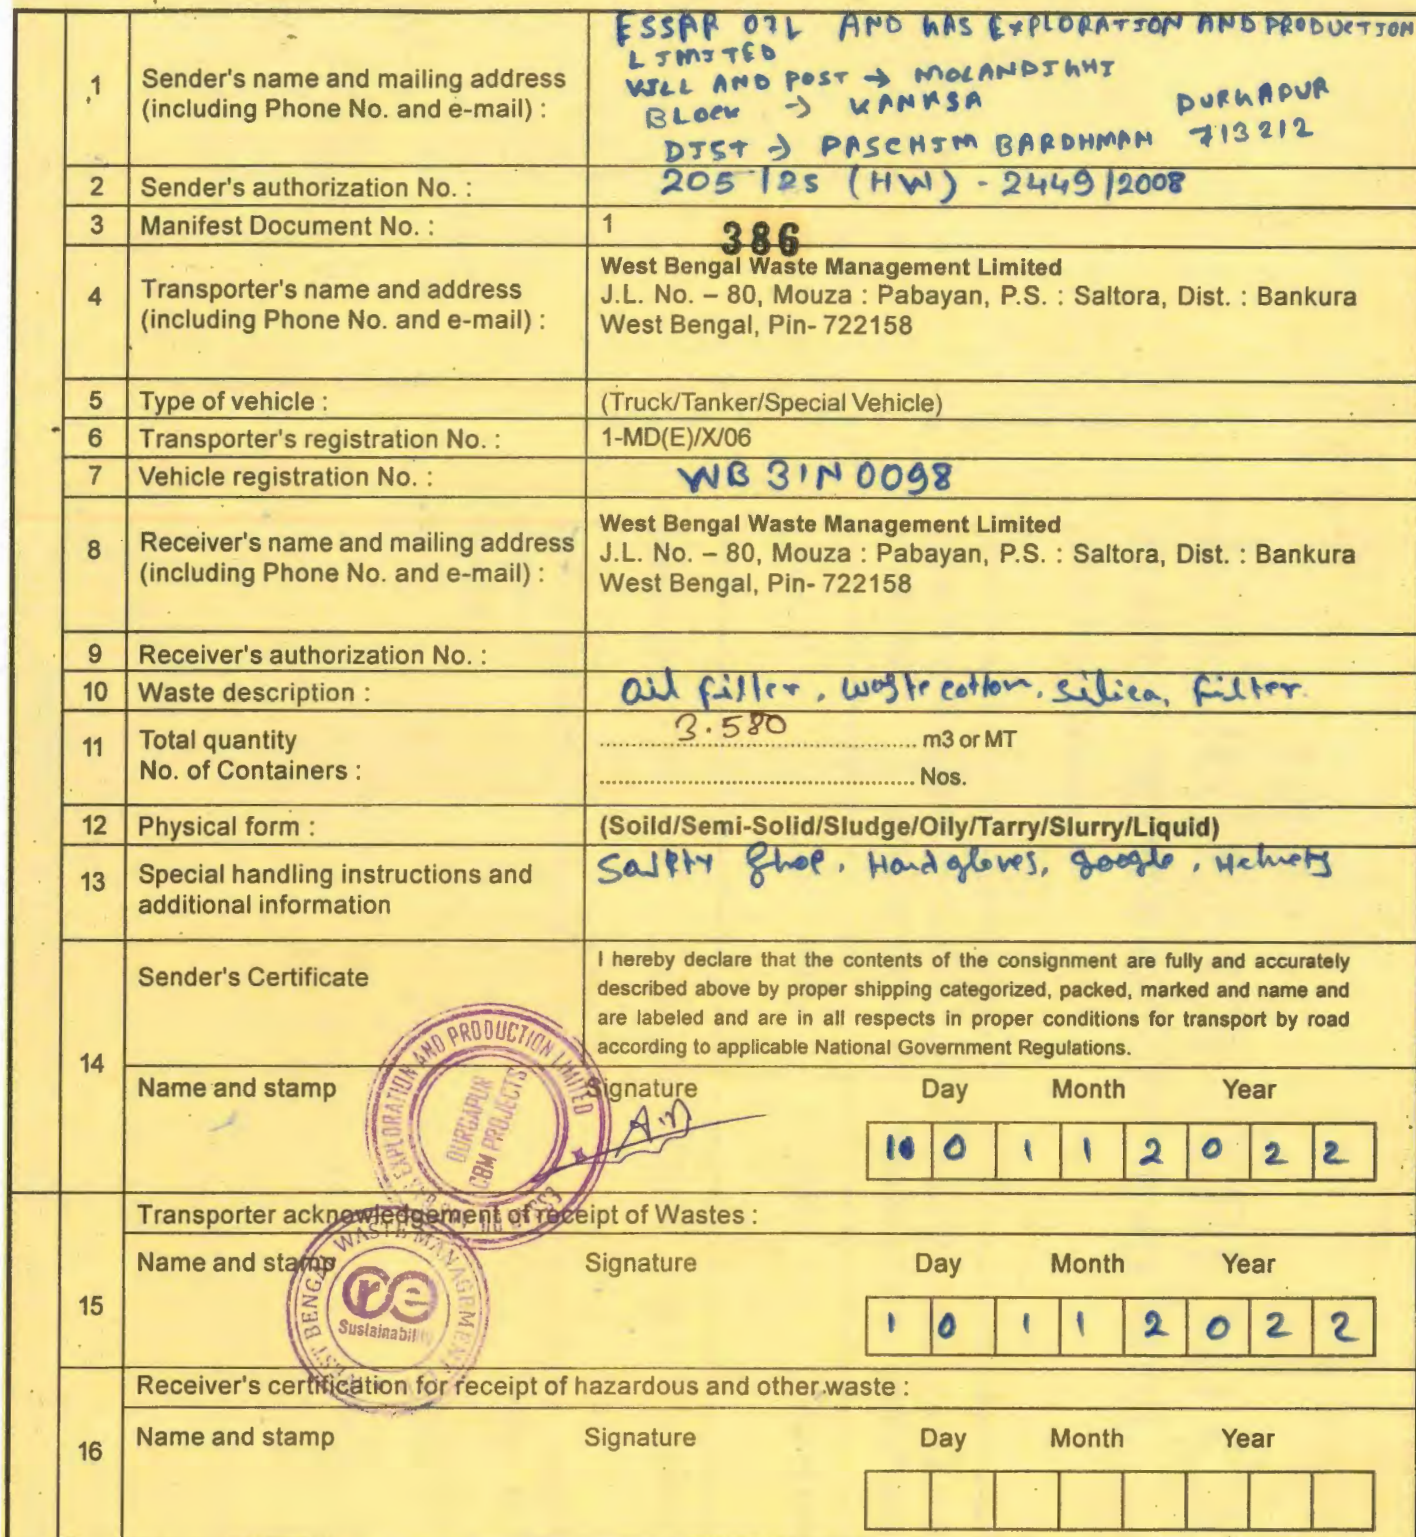 1 Sender's name and mailing address (including Phone No. and e-mail) :
ESSAR OIL AND GAS EXPLORATION AND PRODUCTION
LIMITED
VILL AND POST → MOLANDIGHI
BLOCK → KANKSA DURGAPUR
DIST → PASCHIM BARDHMAN 713212
2 Sender's authorization No. : 205/2S (HW) - 2449/2008
3 Manifest Document No. : 1 386
4 Transporter's name and address (including Phone No. and e-mail) :
West Bengal Waste Management Limited
J.L. No. – 80, Mouza : Pabayan, P.S. : Saltora, Dist. : Bankura
West Bengal, Pin- 722158
5 Type of vehicle : (Truck/Tanker/Special Vehicle)
6 Transporter's registration No. : 1-MD(E)/X/06
7 Vehicle registration No. : WB 31N 0098
8 Receiver's name and mailing address (including Phone No. and e-mail) :
West Bengal Waste Management Limited
J.L. No. – 80, Mouza : Pabayan, P.S. : Saltora, Dist. : Bankura
West Bengal, Pin- 722158
9 Receiver's authorization No. :
10 Waste description : oil filter, waste cotton, silica, filter.
11 Total quantity 3.580 m3 or MT
No. of Containers : Nos.
12 Physical form : (Soild/Semi-Solid/Sludge/Oily/Tarry/Slurry/Liquid)
13 Special handling instructions and additional information
Shoe, Hand gloves, google, Helmets
14 Sender's Certificate
I hereby declare that the contents of the consignment are fully and accurately
described above by proper shipping categorized, packed, marked and name and
are labeled and are in all respects in proper conditions for transport by road
according to applicable National Government Regulations.
Name and stamp Signature Day Month Year
EXPLORATION AND PRODUCTION LIMITED
DURGAPUR
CBM PROJECTS
10 0 1 1 2 0 2 2
Transporter acknowledgement of receipt of Wastes :
15 Name and stamp Signature Day Month Year
WEST BENGAL WASTE MANAGEMENT
re
Sustainability
1 0 1 1 2 0 2 2
Receiver's certification for receipt of hazardous and other waste :
16 Name and stamp Signature Day Month Year